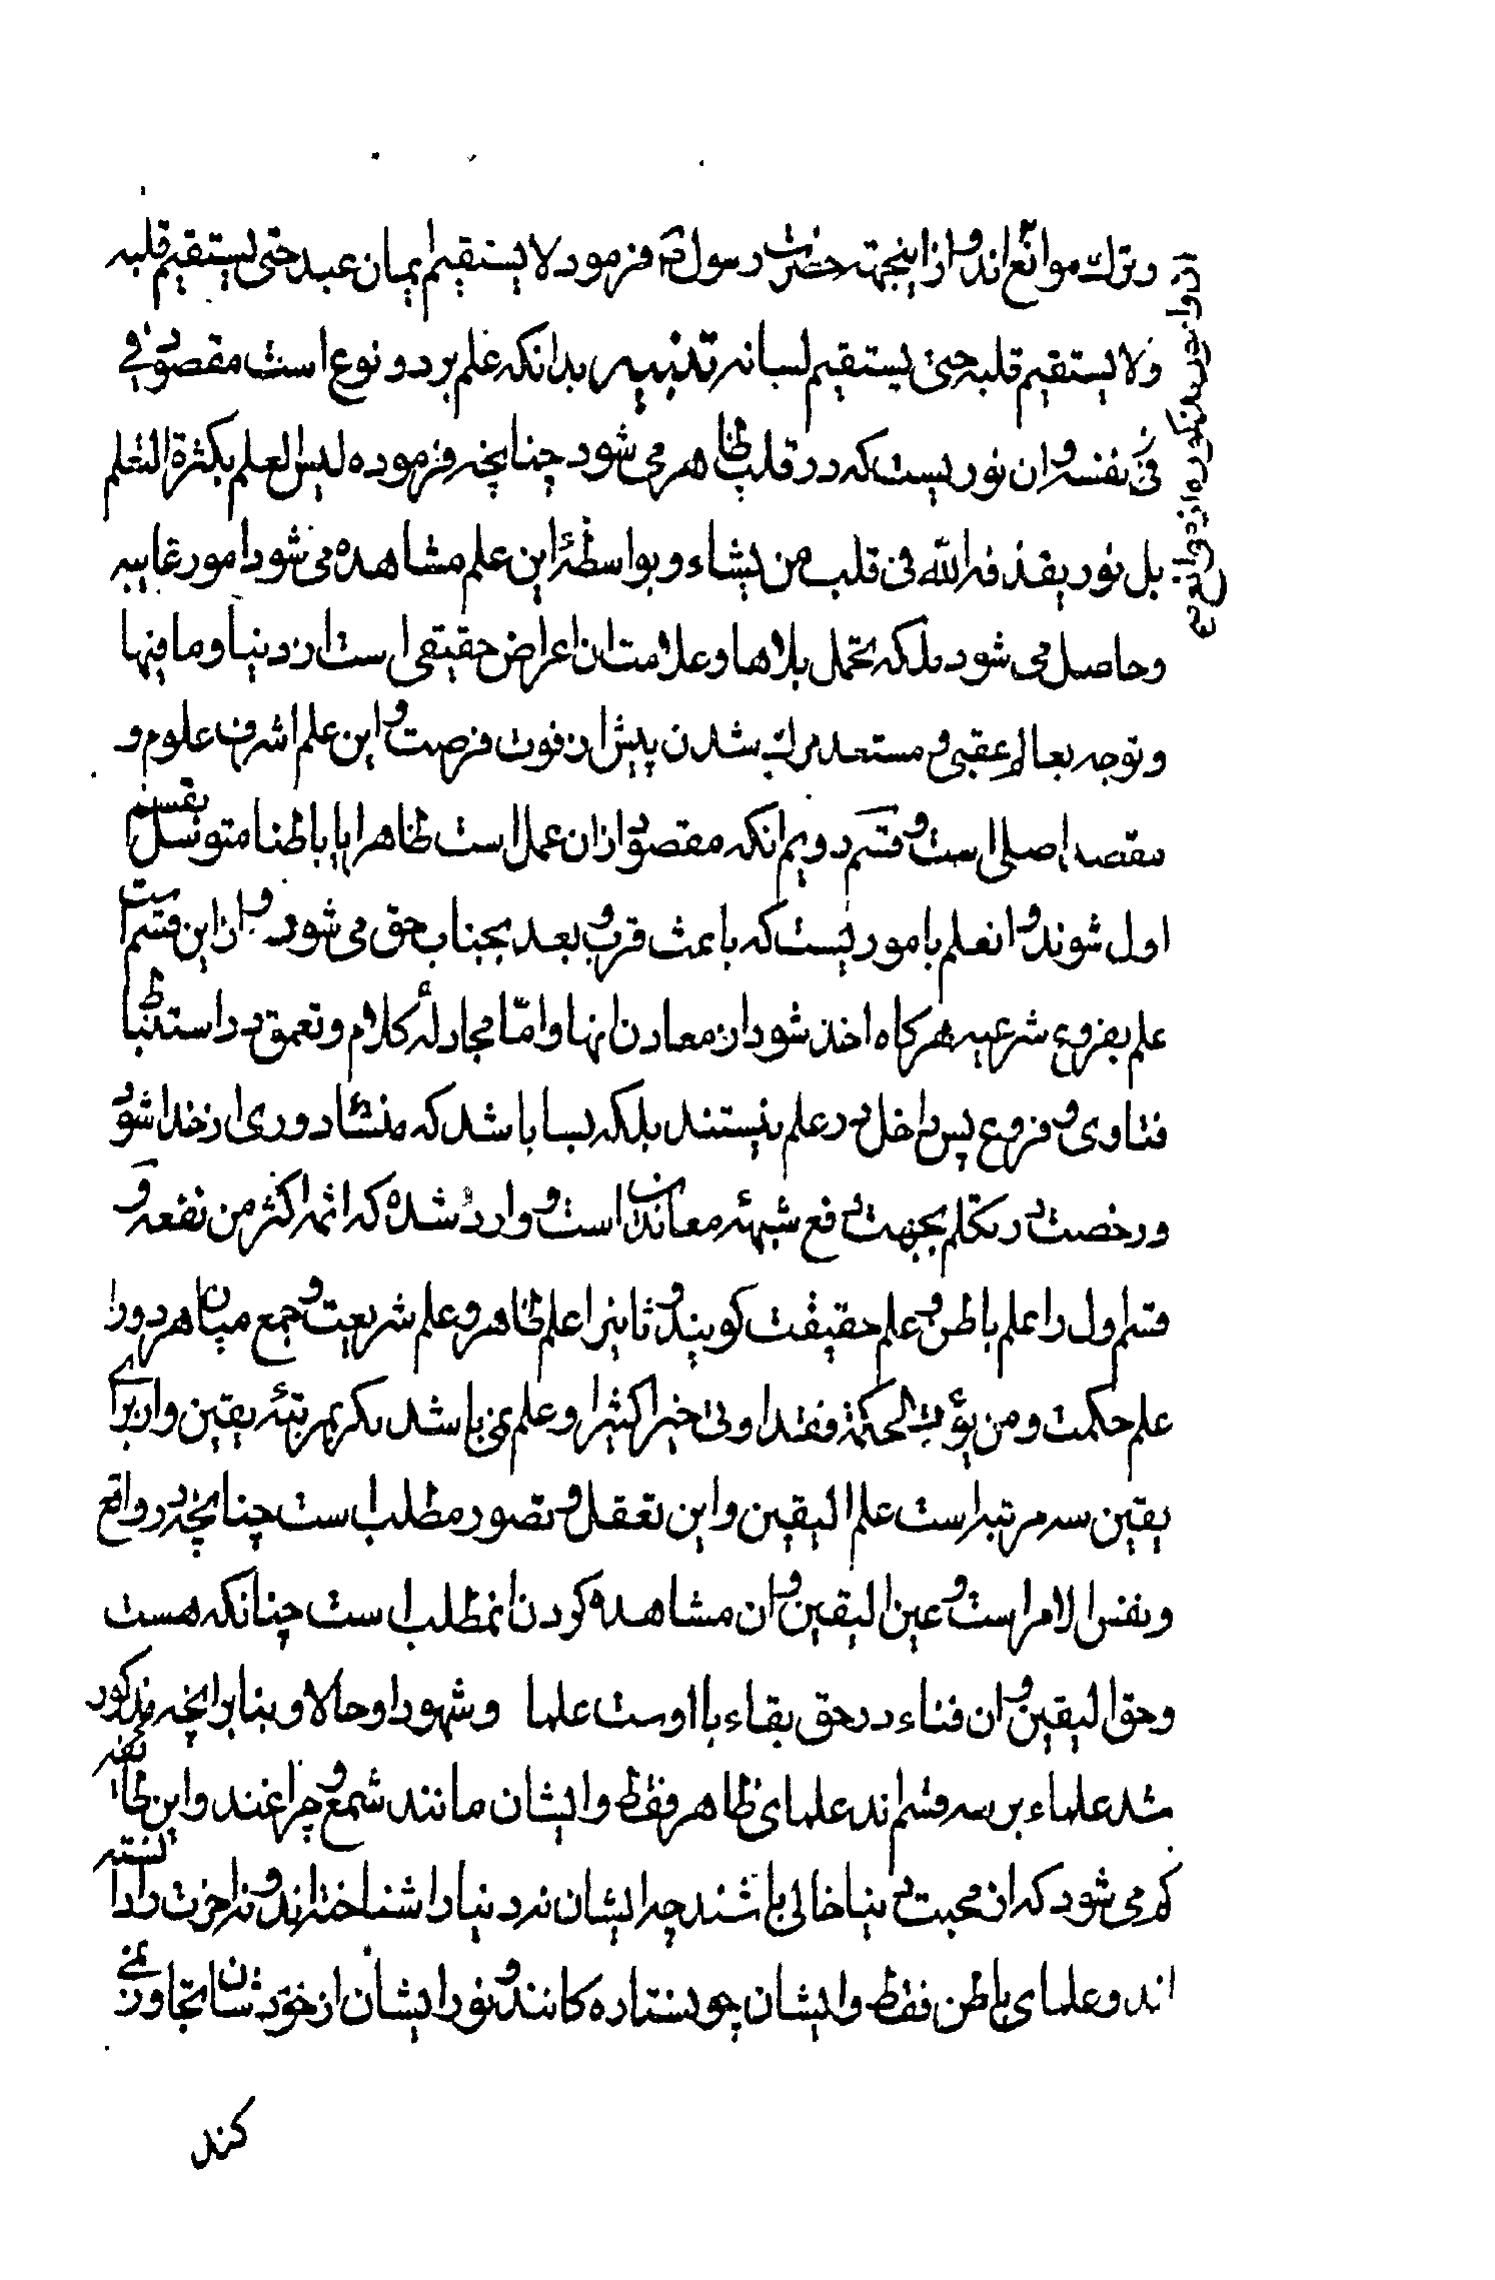 و ترك موانع اند و ازاینجهته حضرت رسول ص فرمود لا یستقیم ایمان عبد حتی یستقیم قلبه
ولا یستقیم قلبه حتی یستقیم لسانه تنبیه بدانکه علم بر دو نوع است مقصود فی
فی نفسه و ان نوریست که در قلب ظاهر می شود چنانچه فرموده لیس العلم بکثرة التعلم
بل نور یقذفه الله فی قلب من یشاء و بواسطهٔ این علم مشاهده می شود امور غایبه
و حاصل می شود بلکه تحمل بلاها و علامت ان اعراض حقیقی است از دنیا و مافیها
و توجه بعالم عقبی و مستعد مرك شدن پیش از فوت فرصت و این علم اشرف علوم و
مقصد اصلی است و قسم دویم انکه مقصود ازان عمل است ظاهرا یا باطنا متوسل بقسم
اول شوند و انعلم باموریست که باعث قرب و بعد بجناب حق می شود و از این قسم است
علم بفروع شرعیه هر کاه اخذ شود از معادن انها و امّا مجادلهٔ کلام و تعمق در استنباط
فتاوی و فروع پس داخل در علم نیستند بلکه بسا باشد که منشاء دوری از خدا شود
و رخصت در تکلم بجهت دفع شبههٔ معاندان است و وارد شده که اثمه اکثر من نفعه و
قسم اول را علم باطن و علم حقیقت کویند و ثانیرا علم ظاهر و علم شریعت و جمع میان هر دو را
علم حکمت و من یؤت الحکمة فقد اوتی خیرا کثیرا و علم نمی باشد مکر بمرتبهٔ یقین و از برای
یقین سه مرتبه است علم الیقین و این تعقل و تصور مطلب است چنانچه در واقع
و نفس الامر است و عین الیقین و ان مشاهده کردن انمطلب است چنانکه هست
و حق الیقین و ان فناء در حق بقاء با اوست علما و شهودا و حالا و بنا برانچه مذکور
شد علماء بر سه قسم اند علمای ظاهر فقط و ایشان مانند شمع و چراغند و این طایفه
کم می شود که از محبت دنیا خالی باشند چه ایشان نه دنیا را شناخته اند و نه اخرت را دانسته
اند و علمای باطن فقط و ایشان چو ستاره کانند و نور ایشان از خود شان تجاوز نمی
کند